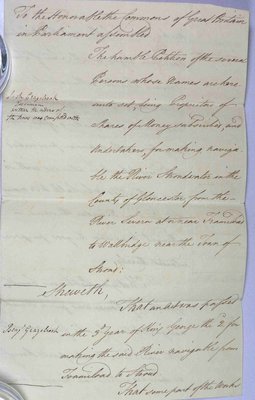 To the Honourable the Commons of Great Britain
in Parliament assembled
The humble Petition of the several
Persons whose Names are here
unto set being Proprietors of
Shares of Money subscribed and
Undertakers for making naviga
ble the River Stroudwater in the
County of Gloucester from the
River Severn at or near Framiload
to Wallbridge near the Town of
Stroud:
Sheweth,
That an Act was passed
in the 3d year of King George the 2d for
making the said River navigable from
Framiload to Stroud
That some part of the Works
Grazebrook
the same was complied with
Benjn Grazebrook